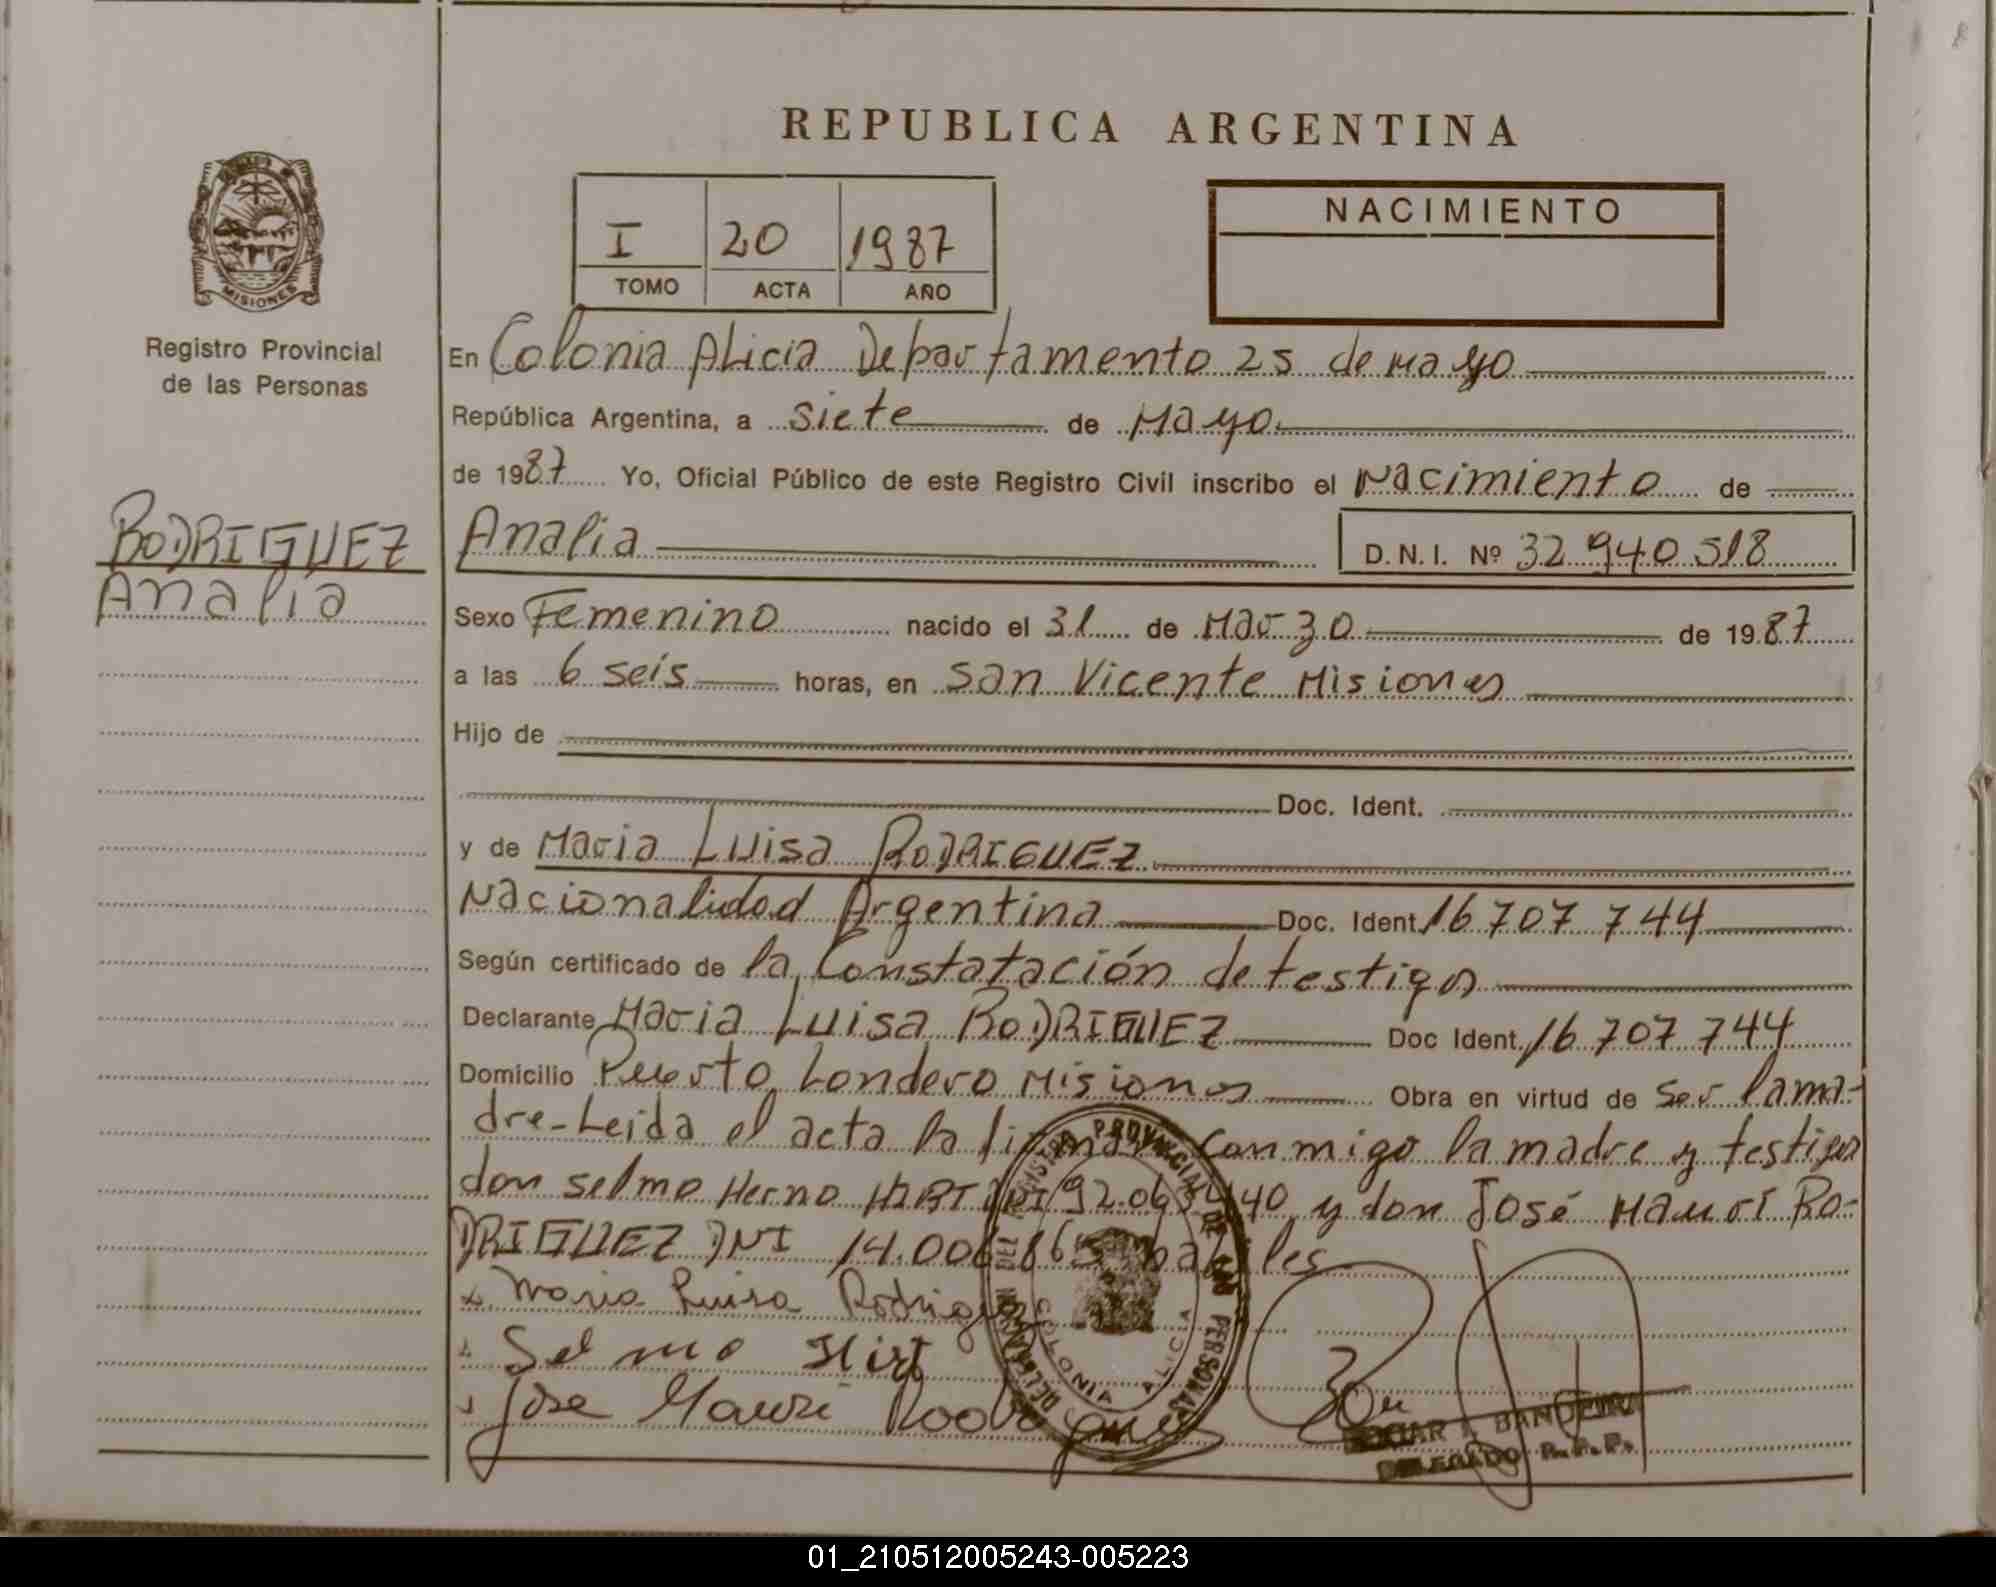 REPUBLICA ARGENTINA
MISIONES
Registro Provincial
de las Personas
I 20 1987
TOMO ACTA AÑO
NACIMIENTO
RODRIGUEZ
Analia
En Colonia Alicia Departamento 25 de Mayo
República Argentina, a siete de Mayo
de 1987 Yo, Oficial Público de este Registro Civil inscribo el Nacimiento de
Analia D.N.I. Nº 32 940 518
Sexo Femenino nacido el 31 de Marzo de 1987
a las 6 seis horas, en San Vicente Misiones
Hijo de
Doc. Ident.
y de Maria Luisa RODRIGUEZ
Nacionalidad Argentina Doc. Ident. 16 707 744
Según certificado de la Constatación de testigos
Declarante Maria Luisa RODRIGUEZ Doc Ident. 16 707 744
Domicilio Puerto Londero Misiones Obra en virtud de ser la ma-
dre-Leida el acta la firman Conmigo la madre y testigos
don Selmo DNI 92.065 440 y don José Mauri Ro-
DRIGUEZ DNI 14.006 865 habiles
x Maria Luisa Rodriguez
Selmo Hirt
Jose Mauri Rodrigues
DELEGACION DEL REGISTRO PROVINCIAL DE LAS PERSONAS
COLONIA ALICIA
BANDEIRA
DELEGADO R.P.P.
01_210512005243-005223